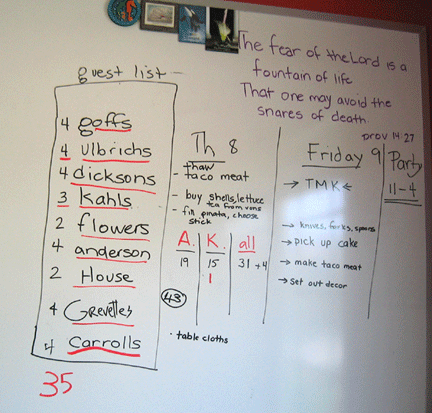 The fear of the Lord is a
fountain of life
That one may avoid the
snares of death.
prov 14:27
guest list
4 goffs
4 ulbrichs
4 dicksons
3 Kahls
2 flowers
4 anderson
2 House
4 Grevelles
4 Carrolls
35
Th 8
thaw
- taco meat
- buy shells, lettuce
tea from vons
- fill pinata, choose
stick
A. K. all
19 15 31 +4
1
43
· table cloths
Friday 9
→ TMK ←
→ knives, forks, spoons
→ pick up cake
→ make taco meat
→ set out decor
Party
11-4